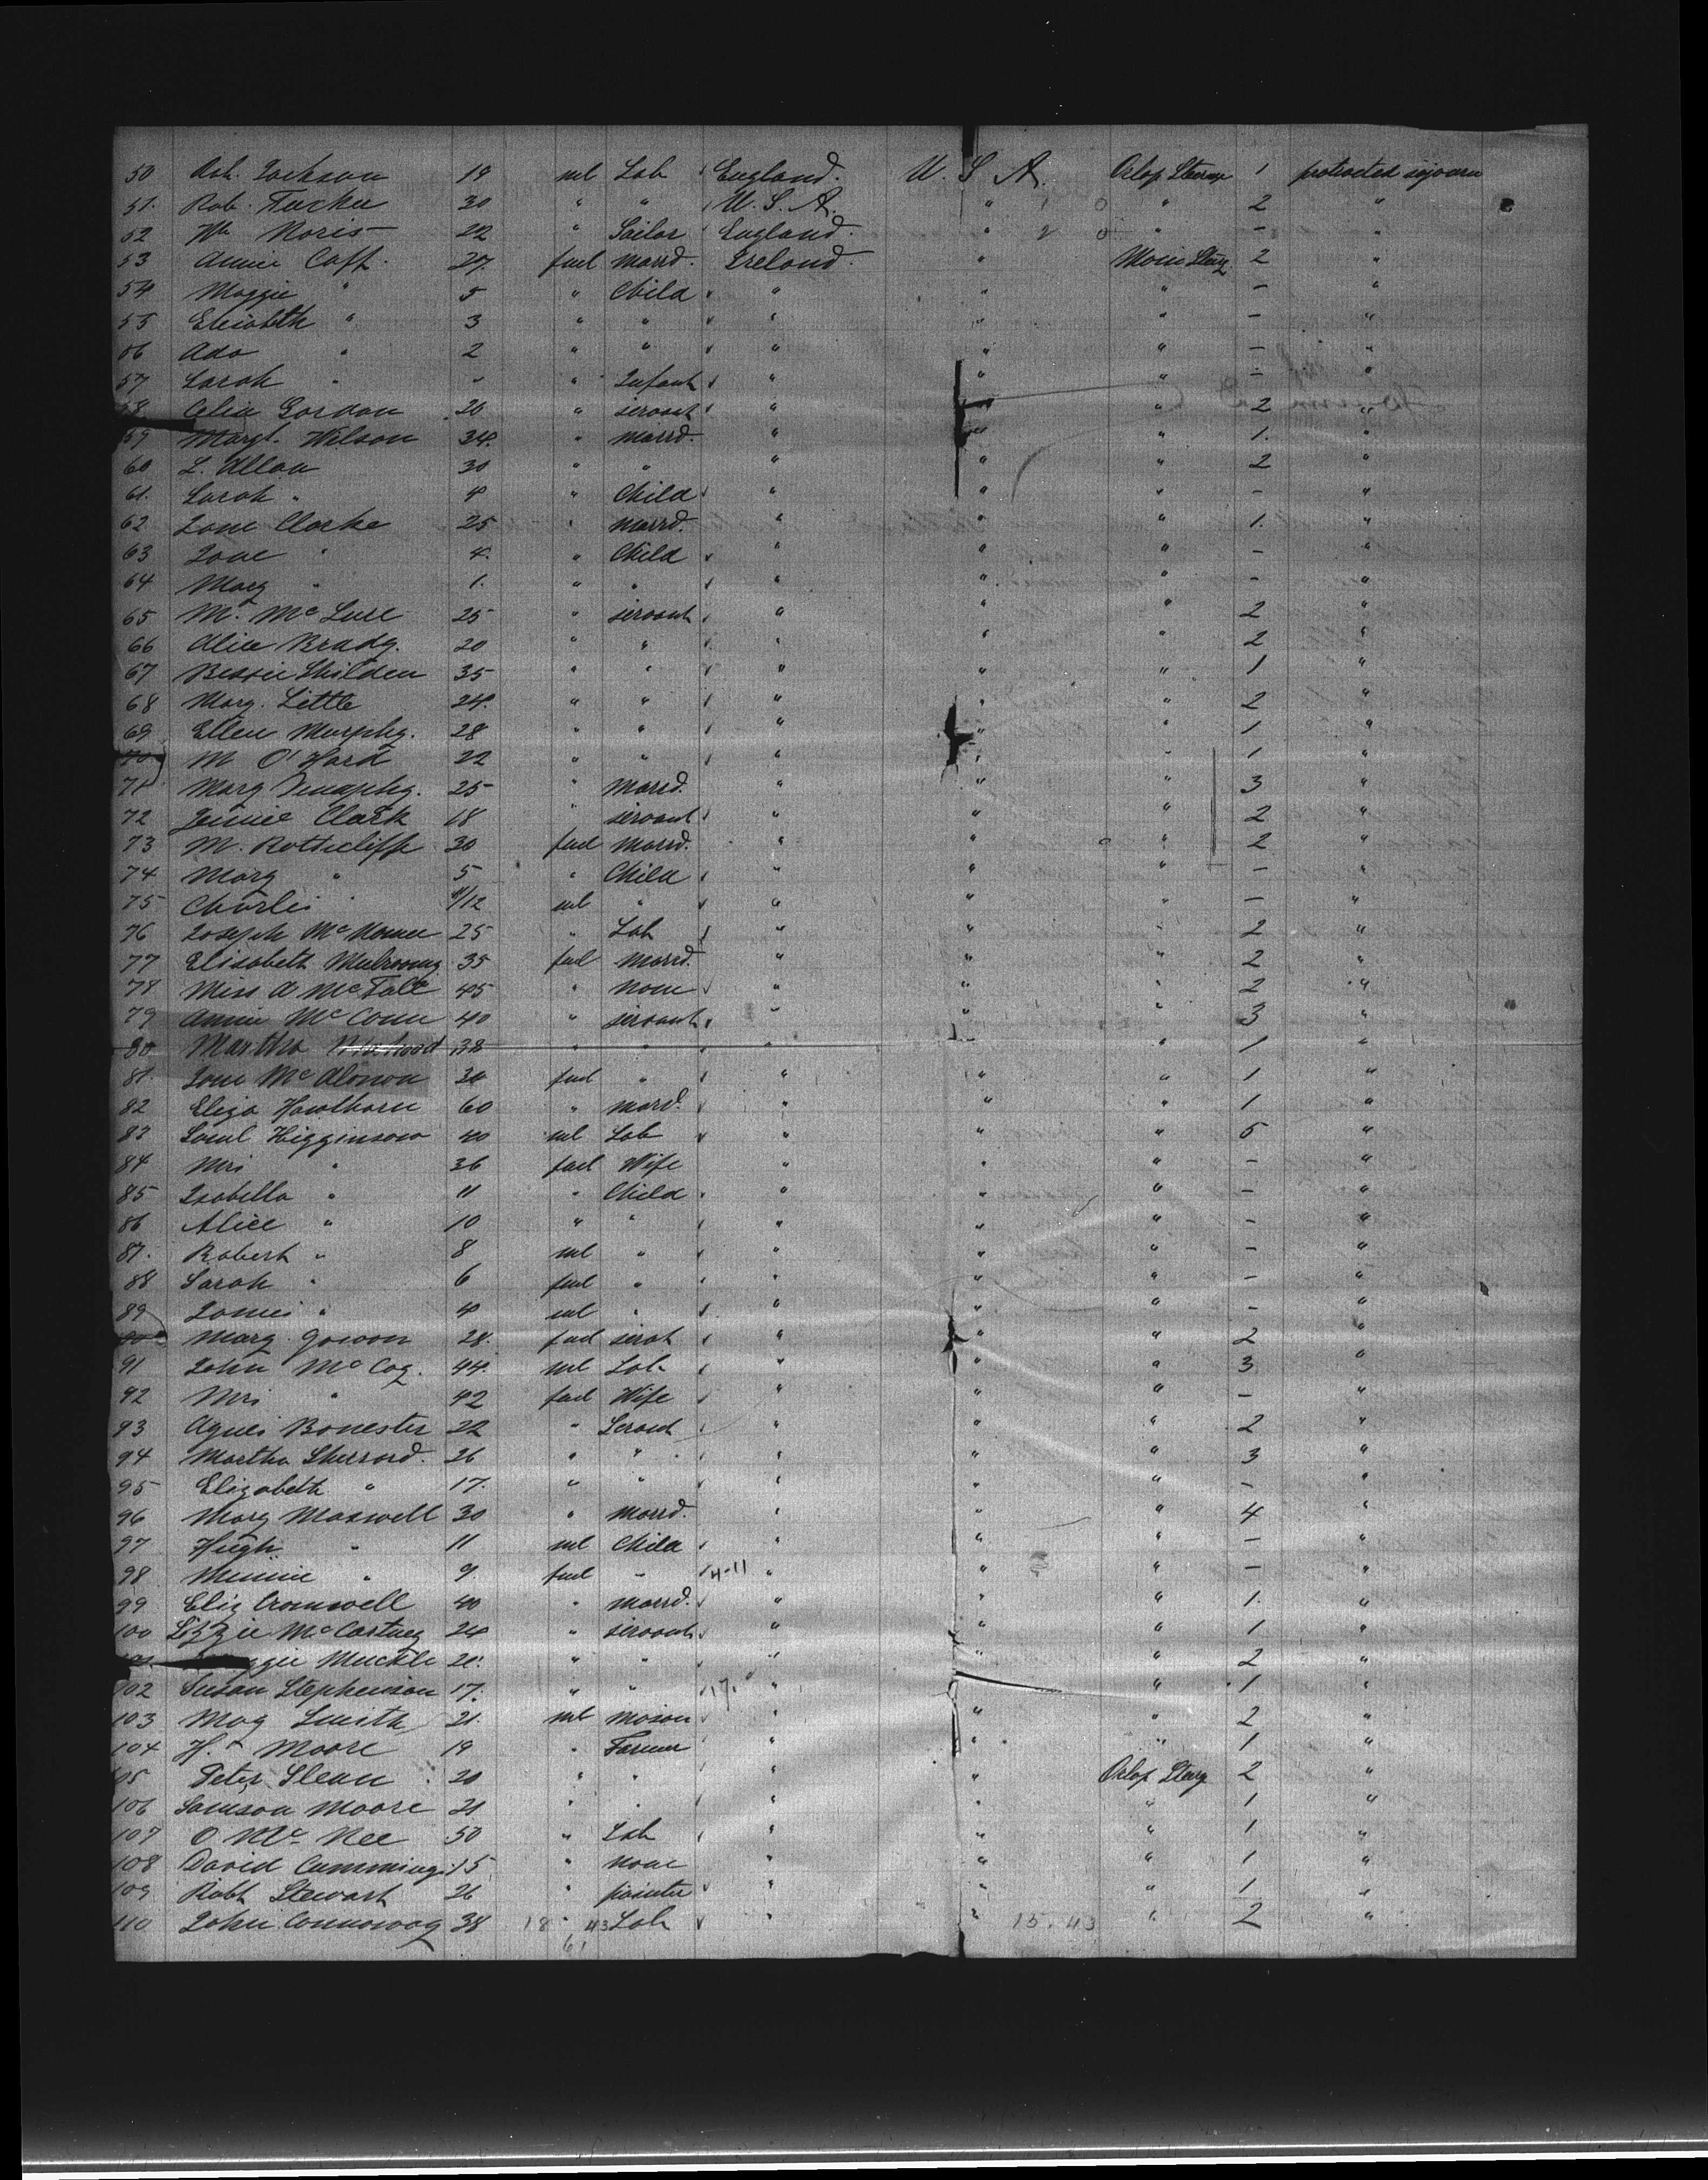 50 Jackson 19 ml Lab England. U. S. A. Orlop Steerage 1 protracted sojourn
51. Rob. Tucker 30 " " U. S. A. " " 2 "
52 Wm Noris 22 " Sailor England. " " - "
53 Annie Caff. 27. feml marrd. Ireland. " Main Steerg. 2 "
54 Maggie " 5 " Child " " " - "
55 Elisabeth " 3 " " " " " - "
56 Ada " 2 " " " " " - "
57 Sarah " - " Infant " " " - "
58 Celia Gordon 20 " servant " " " 2 "
59 Margt. Wilson 34. " marrd. " " " 1. "
60 L. Allan 30 " " " " " 2 "
61. Sarah " 4 " Child " " " - "
62 Jane Clarke 25 " marrd. " " " 1. "
63 Jane " 4. " Child " " " - "
64 Mary " 1. " " " " " - "
65 M. Mc Lure 25 " servant " " " 2 "
66 Alice Brady. 20 " " " " " 2 "
67 Bessie 35 " " " " " 1 "
68 Mary. Little 24. " " " " " 2 "
69 Ellen Murphy. 28 " " " " " 1 "
70 M O'Hard 22 " " " " " 1 "
71 Mary 25 " Marrd. " " " 3 "
72 Jennie Clark 18 servant " " " 2 "
73 M. Rottcliffe 30 feml marrd. " " " 2 "
74 Mary " 5 " Child " " " - "
75 Charles " 11/12 ml " " " " - "
76 Joseph 25 " Lab " " " 2 "
77 Elisabeth Mulroony 35 feml marrd. " " " 2 "
78 Miss A 45 " None " " " 2 "
79 Annie Mc Conn 40 " servant " " " 3 "
80 Martha 38 " " " " 1 "
81. Jane Mc Alonon 30 feml " " " " 1 "
82 Eliza Hawthorn 60 " marrd. " " " 1 "
83 Saml Higginson 40 ml Lab " " " 5 "
84 Mrs " 36 feml Wife " " " - "
85 Isabella " 11 " Child " " " - "
86 Alice " 10 " " " " " - "
87. Robert " 8 ml " " " " - "
88 Sarah " 6 feml " " " " - "
89 James " 4 ml " " " " - "
90 Mary. Gowon 28. feml servt " " " 2 "
91 John Mc Coy. 44. ml Lab " " " 3 "
92 Mrs " 42 feml Wife " " " - "
93 Agnes 22 " Servnt " " " 2 "
94 Martha Sherrard. 26 " " " " " 3 "
95 Elizabeth " 17. " " " " " - "
96 Mary Maxwell 30 " marrd. " " " 4 "
97 Hugh " 11 ml Child " " " - "
98 Minnie " 9. feml " 4-11 " " " - "
99 Eliz Cromwell 40 " marrd. " " " 1. "
100 Lizzie McCartney 24 " servant " " " 1 "
Muckle 20. " " " " " 2 "
102 Susan Stephenson 17. " " 17. " " " 1 "
103 Smith 21. ml mason " " " 2 "
104 H. Moore 19 " Farmer " " " 1 "
105 Peter 20 " " " " Orlop Steerg 2 "
106 Samson Moore 21 " " " " " 1 "
107 O Mc Nee 50 " Lab " " " 1 "
108 David Cummings 15 " none " " " 1 "
109 Robt Stewart 26 " painter " " " 1 "
110 John 38 18 " 43 Lab " " 15. 43 " 2 "
61